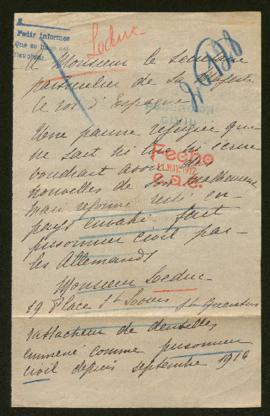 Pedir informes
Leduc
A Monsieur le secrétaire
particulier de Sa Majesté
le roi d'Espagne
Une pauvre réfugiée que
ne sait ni lire ni écrire
voudrait avoir des
nouvelles de son malheureux
mari réformé resté en
pays envahi fait
prisonnier civil par
les Allemands
Fecho
Monsieur Leduc
29 Place St Louis St Quentin
rattacheur de dentelles
emmené comme prisonnier
civil depuis septembre 1916